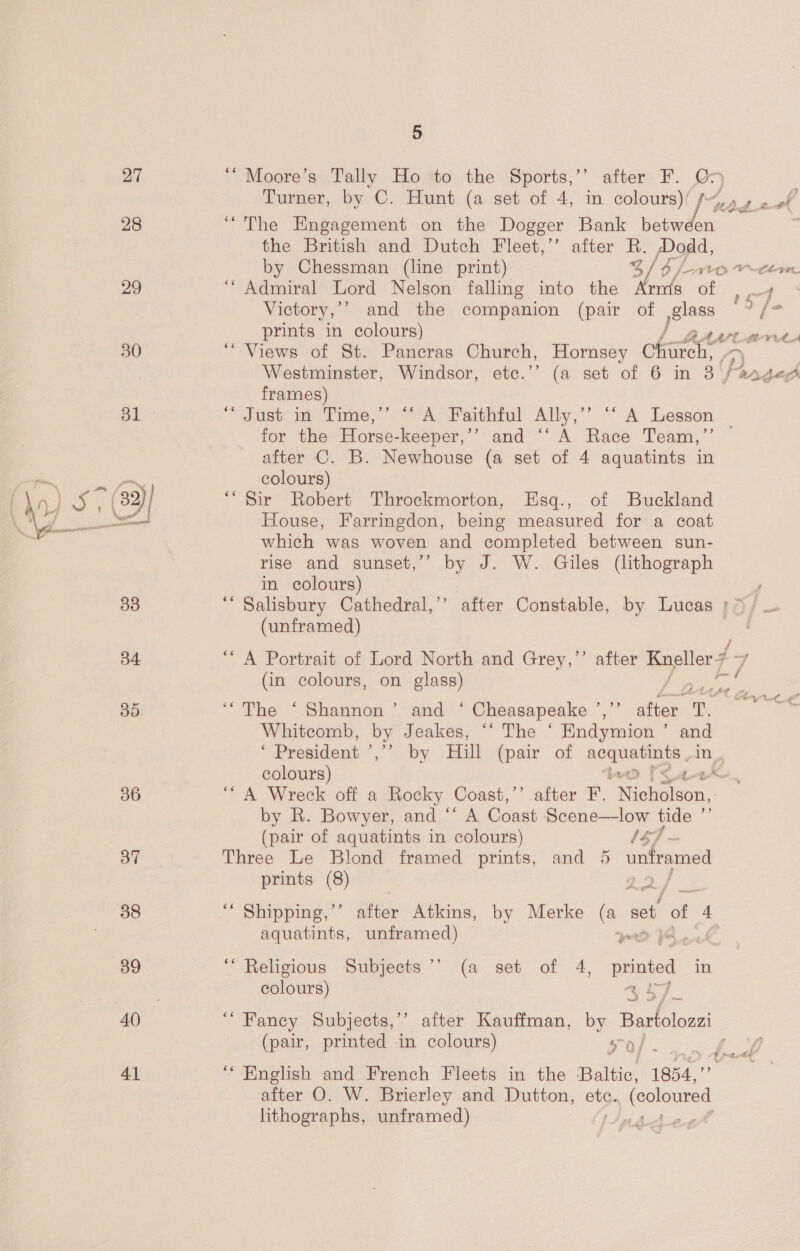 5
27 “Moore’s Tally Ho to the Sports,” after F. C.
Turner, by C. Hunt (a set of 4, in colours)
28 “The Engagement on the Dogger Bank between
the British and Dutch Fleet,” after R. Dodd,
by Chessman (line print)
29 “Admiral Lord Nelson falling into the Arms of
Victory,” and the companion (pair of glass
prints in colours)
30 “Views of St. Pancras Church, Hornsey Church,
Westminster, Windsor, etc.” (a set of 6 in 3
frames)
31 “Just in Time,” “A Faithful Ally,” “A Lesson
for the Horse-keeper,” and “A Race Team,”
after C. B. Newhouse (a set of 4 aquatints in
colours)
(32) “Sir Robert Throckmorton, Esq., of Buckland
House, Farringdon, being measured for a coat
which was woven and completed between sun-
rise and sunset,” by J. W. Giles (lithograph
in colours)
33 “Salisbury Cathedral,” after Constable, by Lucas
(unframed)
34 “A Portrait of Lord North and Grey,” after Kneller
(in colours, on glass)
35 “The ‘Shannon’ and ‘Cheasapeake’,” after T.
Whitcomb, by Jeakes, “The ‘Endymion’ and
‘President’,” by Hill (pair of acquatints in
colours)
36 “A Wreck off a Rocky Coast,” after F. Nicholson,
by R. Bowyer, and “A Coast Scene—low tide”
(pair of aquatints in colours)
37 Three Le Blond framed prints, and 5 unframed
prints (8)
38 “Shipping,” after Atkins, by Merke (a set of 4
aquatints, unframed)
39 “Religious Subjects” (a set of 4, printed in
colours)
40 “Fancy Subjects,” after Kauffman, by Bartolozzi
(pair, printed in colours)
41 “English and French Fleets in the Baltic, 1854,”
after O. W. Brierley and Dutton, etc. (coloured
lithographs, unframed)